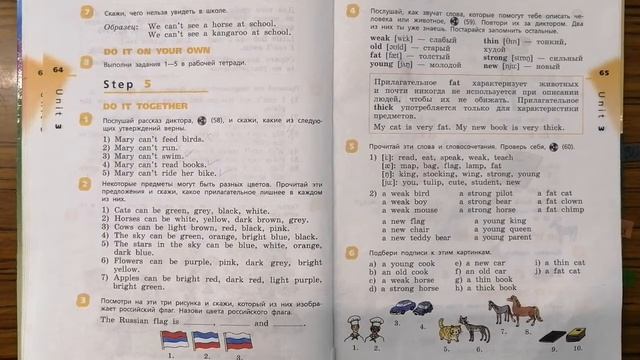 7 Скажи, чего нельзя увидеть в школе.
Образец: We can't see a horse at school.
We can't see a kangaroo at school.
DO IT ON YOUR OWN
8 Выполни задания 1—5 в рабочей тетради.
64
Unit 3
Step 5
DO IT TOGETHER
1 Послушай рассказ диктора, (58), и скажи, какие из следующих утверждений верны.
1) Mary can't feed birds.
2) Mary can't run.
3) Mary can't swim.
4) Mary can't read books.
5) Mary can't ride her bike.
2 Некоторые предметы могут быть разных цветов. Прочитай эти
предложения и скажи, какое прилагательное лишнее в каждом
из них.
1) Cats can be green, grey, black, white.
2) Horses can be white, yellow, dark brown, grey.
3) Cows can be light brown, red, black, pink.
4) The sky can be green, orange, bright blue, black.
5) The stars in the sky can be blue, white, orange,
dark blue.
6) Flowers can be purple, pink, dark grey, bright
yellow.
7) Apples can be bright red, dark red, light purple,
bright green.
3 Посмотри на эти три рисунка и скажи, который из них изображает российский флаг. Назови цвета российского флага.
The Russian flag is , and .
1. 2. 3.
4 Послушай, как звучат слова, которые помогут тебе описать человека или животное, (59). Повтори их за диктором. Два
из них ты уже знаешь. Постарайся запомнить остальные.
weak [wi:k] — слабый
old [əʊld] — старый
fat [fæt] — толстый
young [jʌŋ] — молодой
thin [θɪn] — тонкий,
худой
strong [strɒŋ] — сильный
new [nju:] — новый
65
Unit 3
Прилагательное fat характеризует животных
и почти никогда не используется при описании
людей, чтобы их не обижать. Прилагательное
thick употребляется только для характеристики
предметов.
My cat is very fat. My new book is very thick.
5 Прочитай эти слова и словосочетания. Проверь себя, (60).
1) [i:]: read, eat, speak, weak, teach
[æ]: map, bag, flag, lamp, fat
[ŋ]: king, stocking, wing, strong, young
[ju:]: you, tulip, cute, student, new
2) a weak bird a strong pilot a fat cat
a weak boy a strong bear a fat clown
a weak mouse a strong horse a fat chimp
a new flag a young king
a new chair a young queen
a new teddy bear a young parent
6 Подбери подписи к этим картинкам.
a) a young cook e) a new car i) a thin cat
b) an old cook f) an old car j) a fat cat
c) a weak horse g) a thin book
d) a strong horse h) a thick book
1. 2. 3. 4. 5. 6. 7. 8. 9. 10.